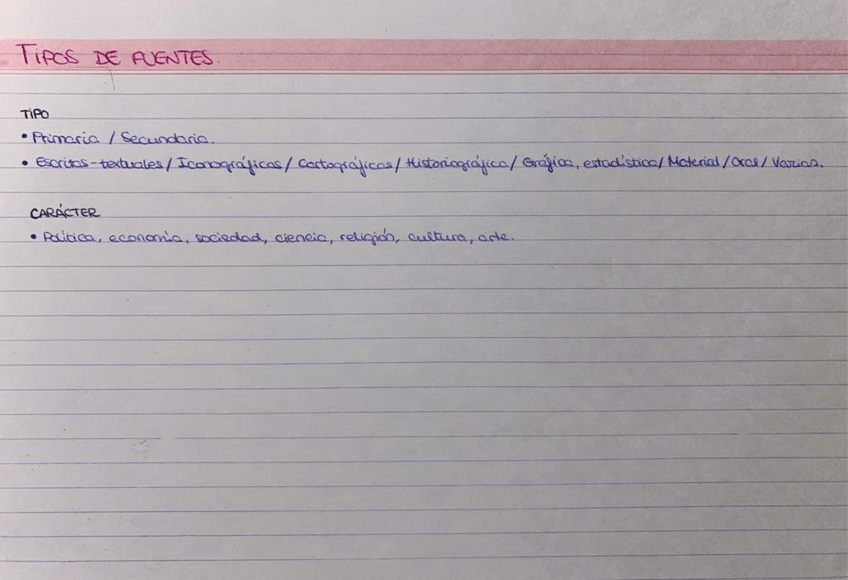 TIPOS DE FUENTES.
TIPO
• Primaria / Secundaria.
• Escritos-textuales / Iconográficas / Cartográficas / Historiográfica / Gráfica, estadística / Material / Oral / Varias.
CARÁCTER
• Política, economía, sociedad, ciencia, religión, cultura, arte.